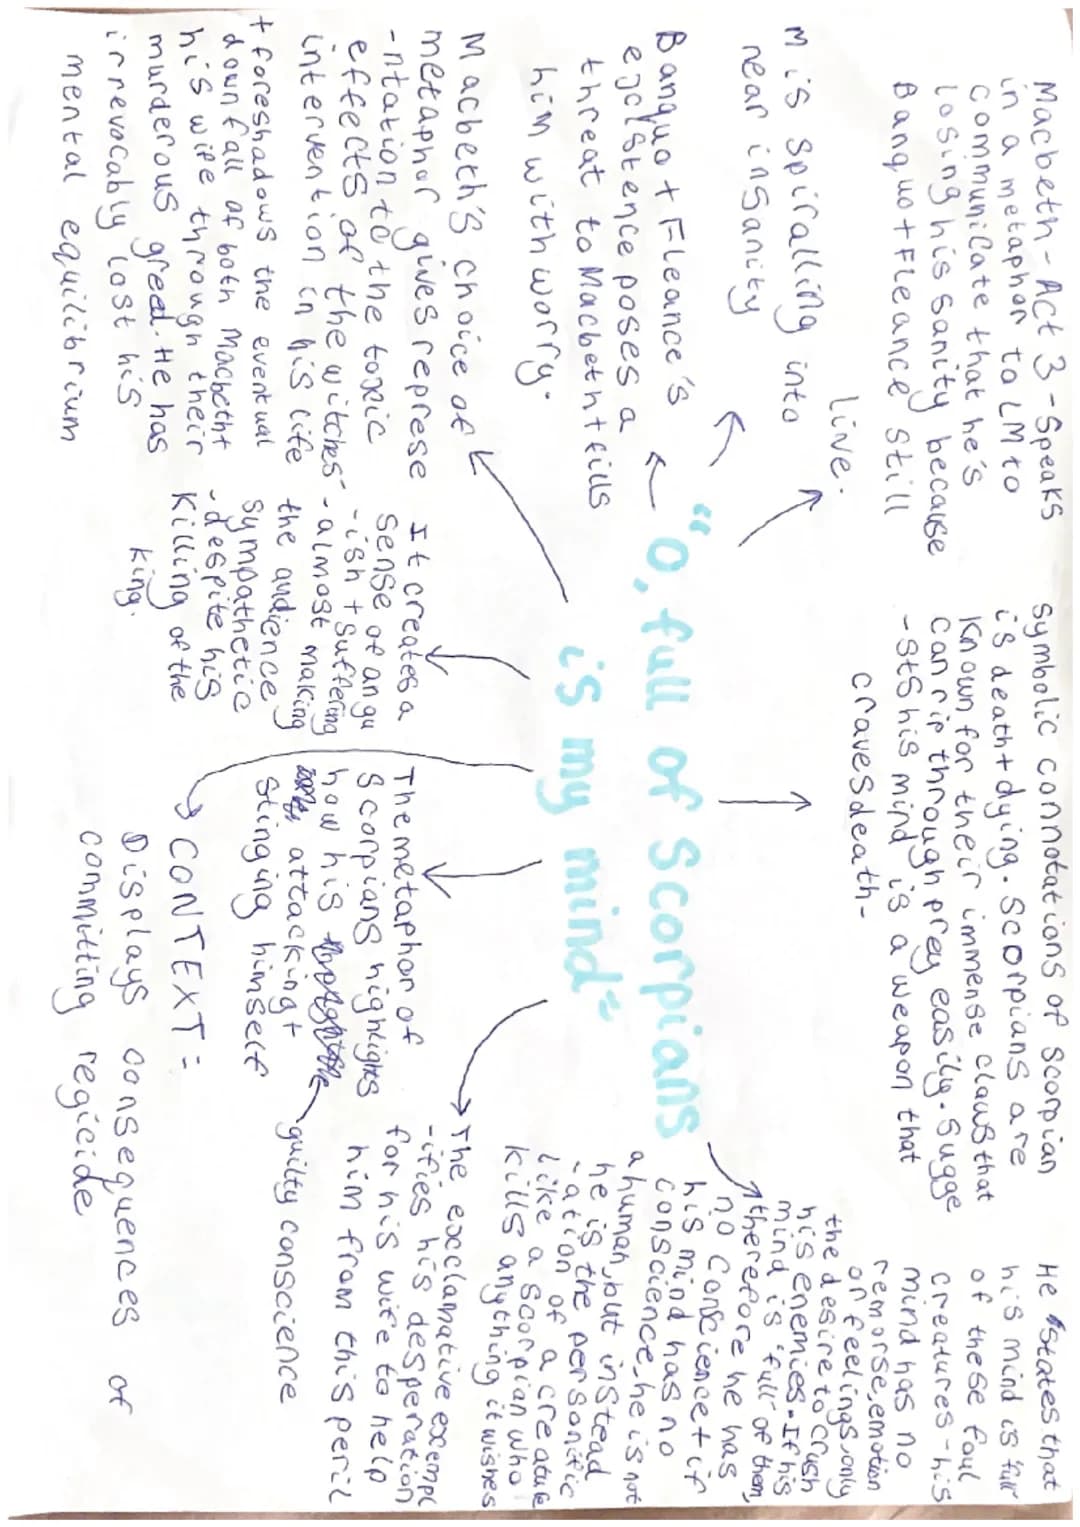 Macbeth - Act 3 - Speaks
in a metaphor to LM to
communicate that he's
losing his sanity because
Banquo + Fleance still
live.
symbolic connotations of scorpian
is death + dying. Scorpians are
Known for their immense claws that
can rip through prey easily. Sugge
-sts his mind is a weapon that
craves death-
He states that
his mind is full
of these foul
creatures - his
mind has no
remorse, emotion
or feelings, only
the desire to crush
his enemies. If his
mind is 'full' of them,
therefore he has
no conscience + if
his mind has no
conscience, he is not
a human, but instead
he is the personific
-ation of a creature
like a scorpian who
kills anything it wishes
M is spiralling into
near insanity
Banquo + Fleance's
existence poses a
threat to Macbeth + fills
him with worry.
"O, full of scorpians
is my mind"
Macbeth's choice of
metaphor gives represe
-ntation to the toxic
effects of the witches'
intervention in his life
+ foreshadows the eventual
downfall of both Macbeth +
his wife through their
murderous greed. He has
irrevocably lost his
mental equilibrium
It creates a
sense of angu
-ish + suffering
- almost making
the audience
sympathetic
- despite his
Killing of the
king.
The metaphor of
Scorpians highlights
how his
attacking +
stinging himself
guilty conscience
The exclamative exempl
-ifies his desperation
for his wife to help
him from this peril
CONTEXT:
Displays consequences of
committing regicide